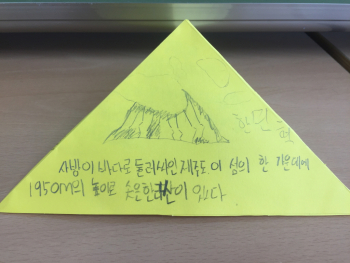 한민혁
사방이 바다로 둘러싸인 제주도 이 섬의 한 가운데에
1950m의 높이로 솟은한라산이 있다